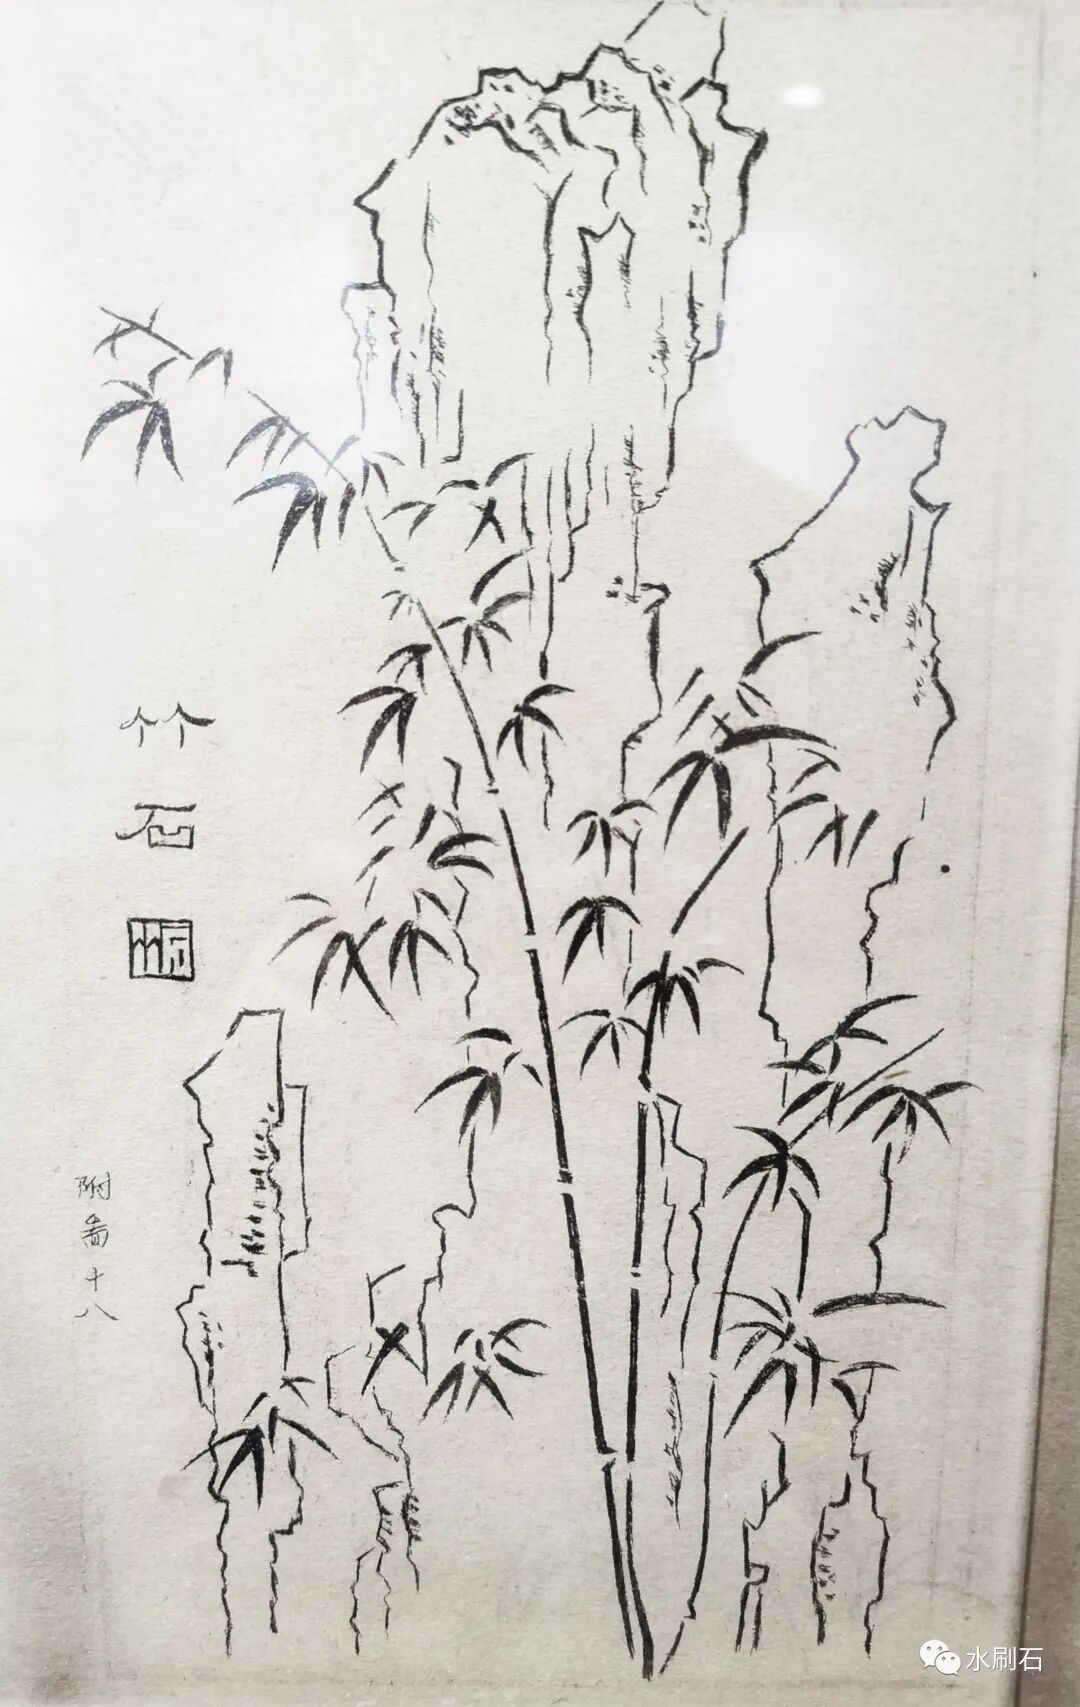 竹石
附啚十八
水刷石